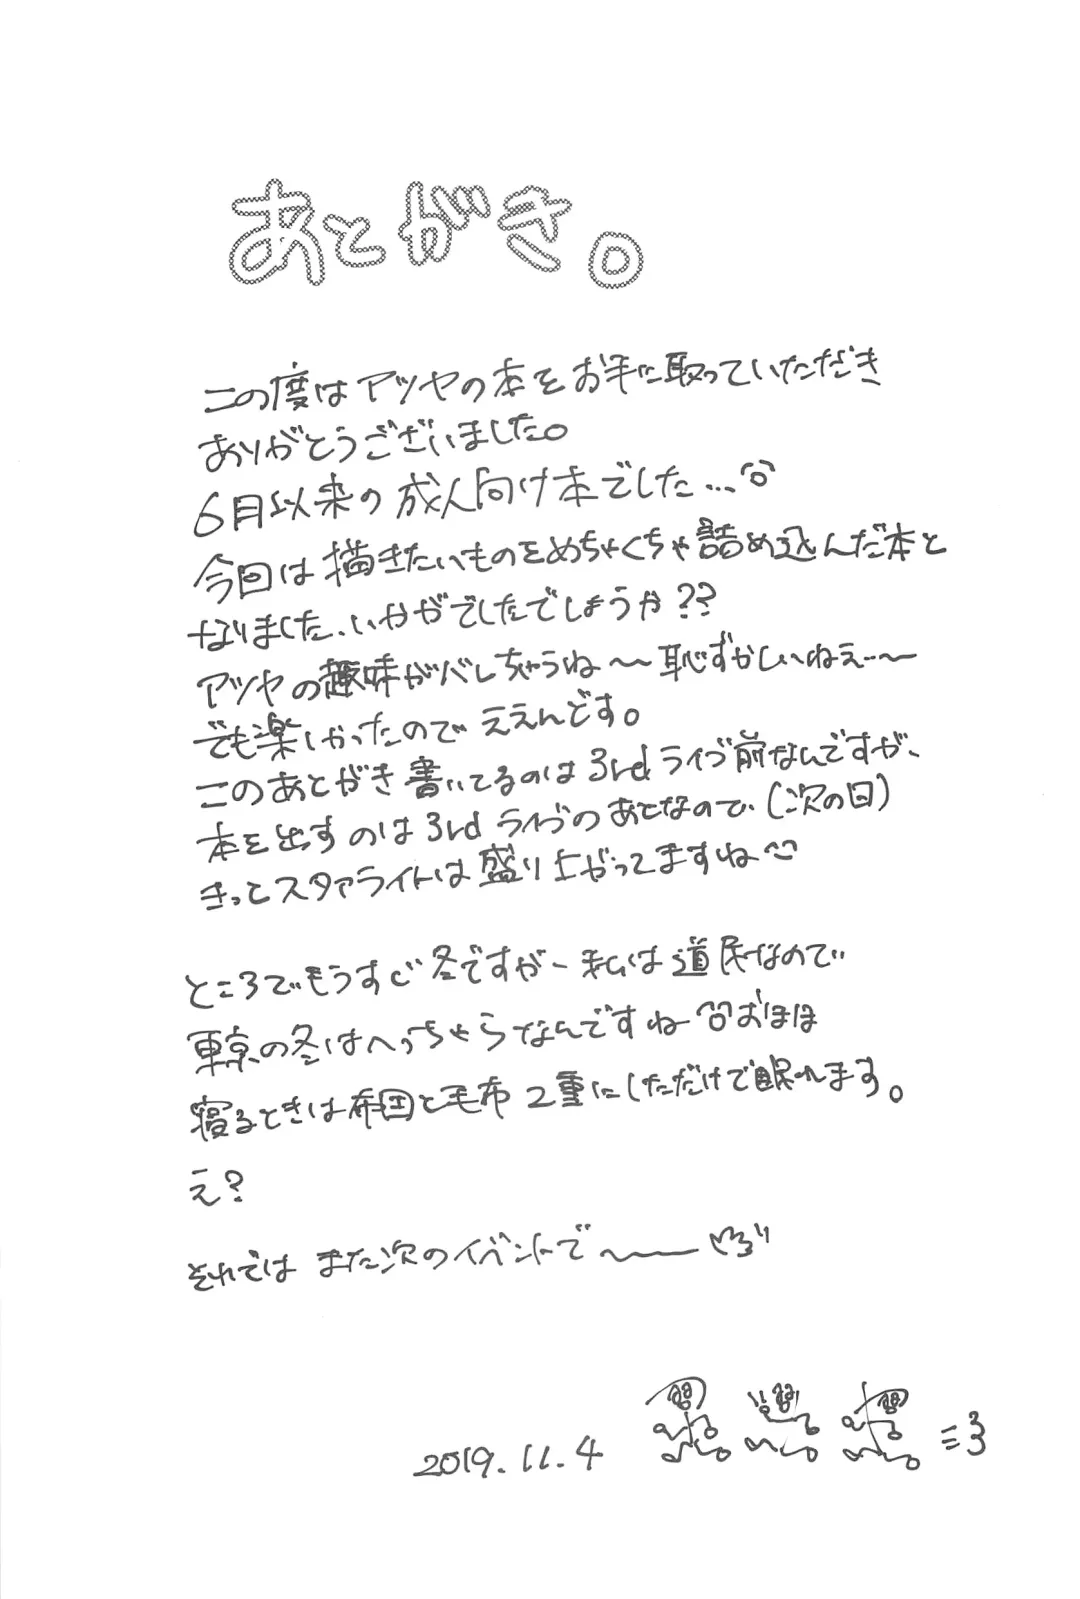 あとがき。
この度はアツヤの本をお手に取っていただき
ありがとうございました。
6月以来の成人向け本でした…
今回は描きたいものをめちゃくちゃ詰め込んだ本と
なりました、いかがでしたでしょうか??
アツヤの趣味がバレちゃうね〜恥ずかしいねぇ〜
でも楽しかったのでええんです。
このあとがき書いてるのは3rdライブ前なんですが、
本を出すのは3rdライブのあとなので、(次の日)
きっとスタァライトは盛り上がってますね
ところでもうすぐ冬ですが、私は道民なので
東京の冬はへっちゃらなんですね おほほ
寝るときは布団と毛布2重にしただけで眠れます。
え?
それでは また次のイベントで〜
2019.11.4